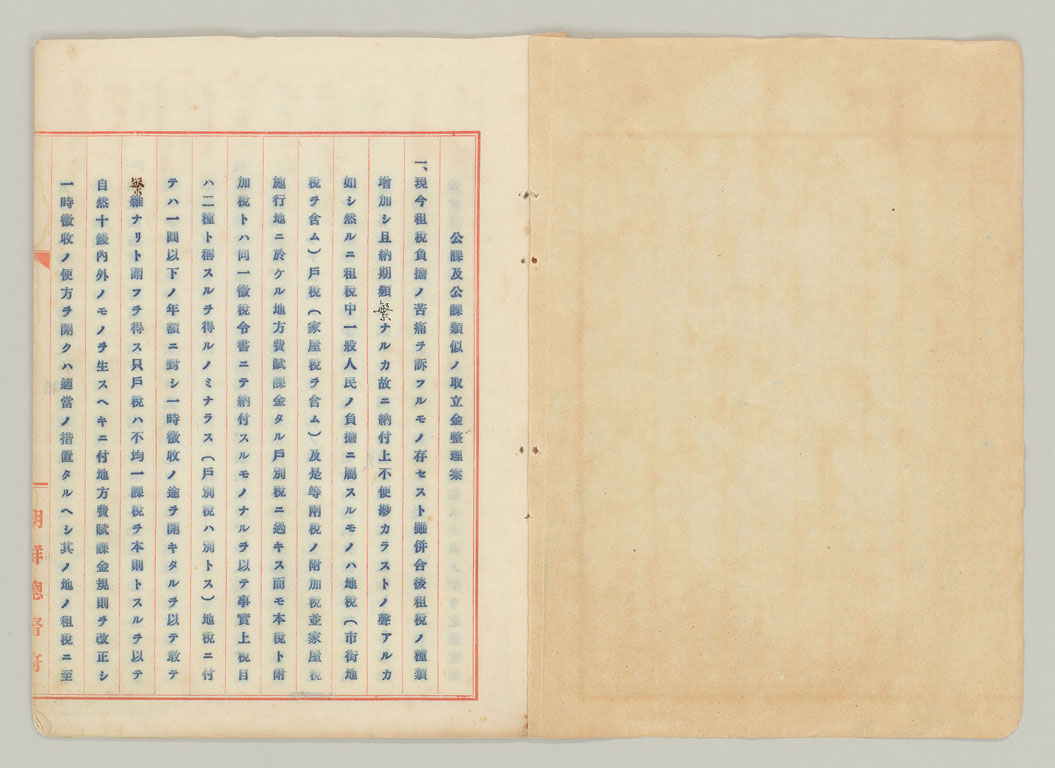 公課及公課類似ノ取立金整理案
一、現今租稅負擔ノ苦痛ヲ訴フルモノ存セスト雖併合後租稅ノ種類
增加シ且納期頻繁ナルカ故ニ納付上不便尠カラストノ聲アルカ
如シ然ルニ租稅中一般人民ノ負擔ニ屬スルモノハ地稅（市街地
稅ヲ含ム）戶稅（家屋稅ヲ含ム）及是等兩稅ノ附加稅並家屋稅
施行地ニ於ケル地方費賦課金タル戶別稅ニ過キス而モ本稅ト附
加稅トハ同一徵稅令書ニテ納付スルモノナルヲ以テ事實上稅目
ハ二種ト稱スルヲ得ルノミナラス（戶別稅ハ別トス）地稅ニ付
テハ一圓以下ノ年額ニ對シ一時徵收ノ途ヲ開キタルヲ以テ敢テ
繁雜ナリト謂フヲ得ス只戶稅ハ不均一課稅ヲ本則トスルヲ以テ
自然十錢內外ノモノヲ生スヘキニ付地方費賦課金規則ヲ改正シ
一時徵收ノ便方ヲ開クハ適當ノ措置タルヘシ其ノ地ノ租稅ニ至
朝鮮總督府